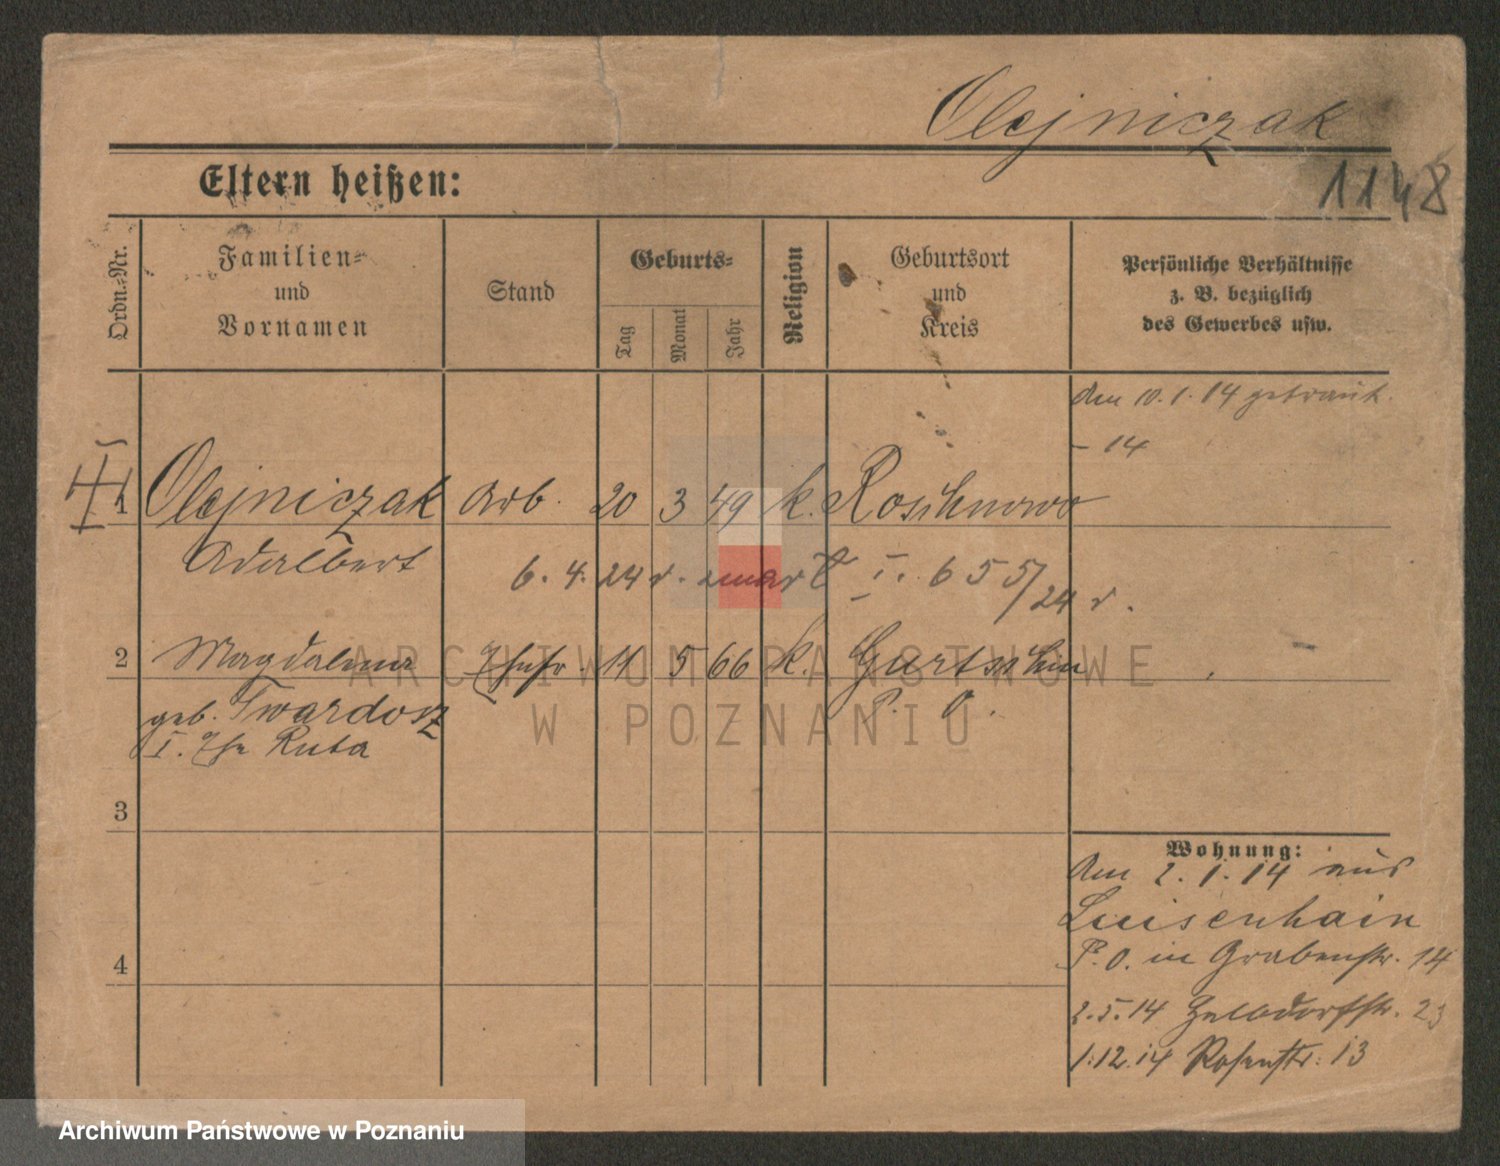 Olejniczak
1148
Eltern heißen:
Ordn.-Nr.
Familien-
und
Vornamen
Stand
Geburts-
Tag
Monat
Jahr
Religion
Geburtsort
und
Kreis
Persönliche Verhältnisse
z. B. bezüglich
des Gewerbes usw.
den 10.1.14 getraut.
- 14
1 Olejniczak Arb. 20 3 49 k. Roschnowo
Adalbert 6.4.24 r. zmarł I. 655/24 r.
2 Magdalena 11 5 66 k. Gurtschin
geb. Twardosz P. O.
I. Ehe Ruta
3
4
Wohnung:
Am 2.1.14 aus
Luisenhain
P. O. in Grabenstr. 14
2.5.14 23
1.12.14 Rosenstr. 13
ARCHIWUM PAŃSTWOWE
W POZNANIU
Archiwum Państwowe w Poznaniu